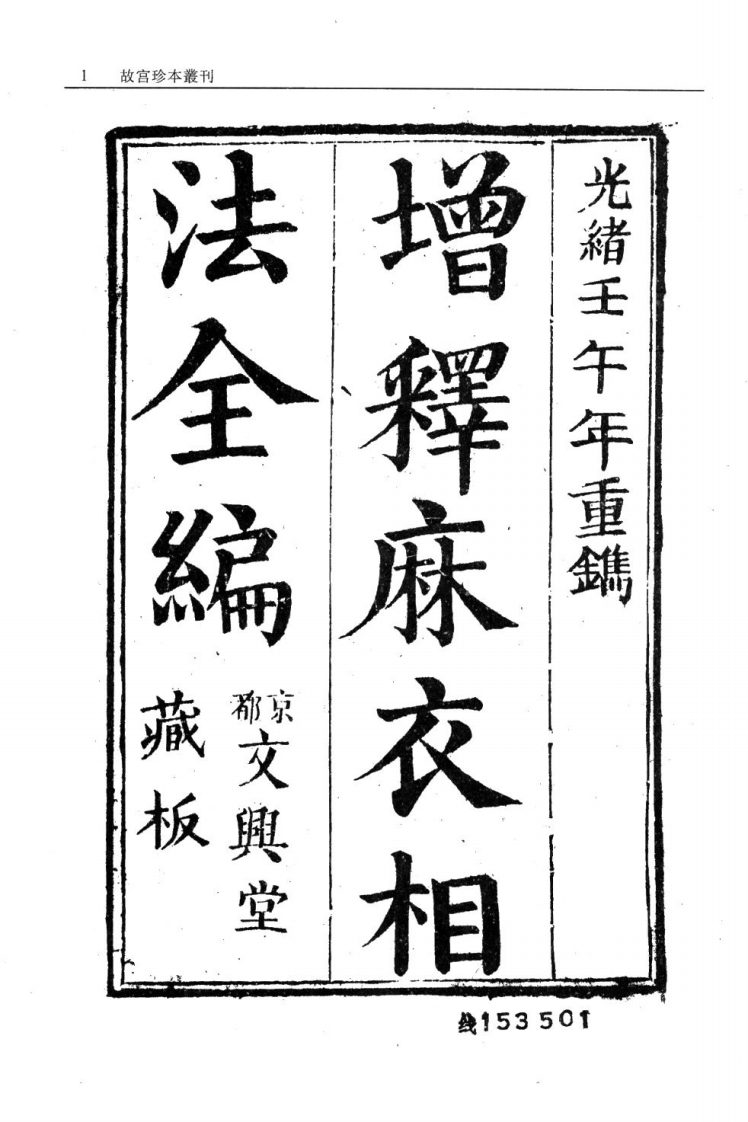 1 故宮珍本叢刊
光緒壬午年重鐫
增釋麻衣相
法全編
京都
文興堂
藏板
线153501